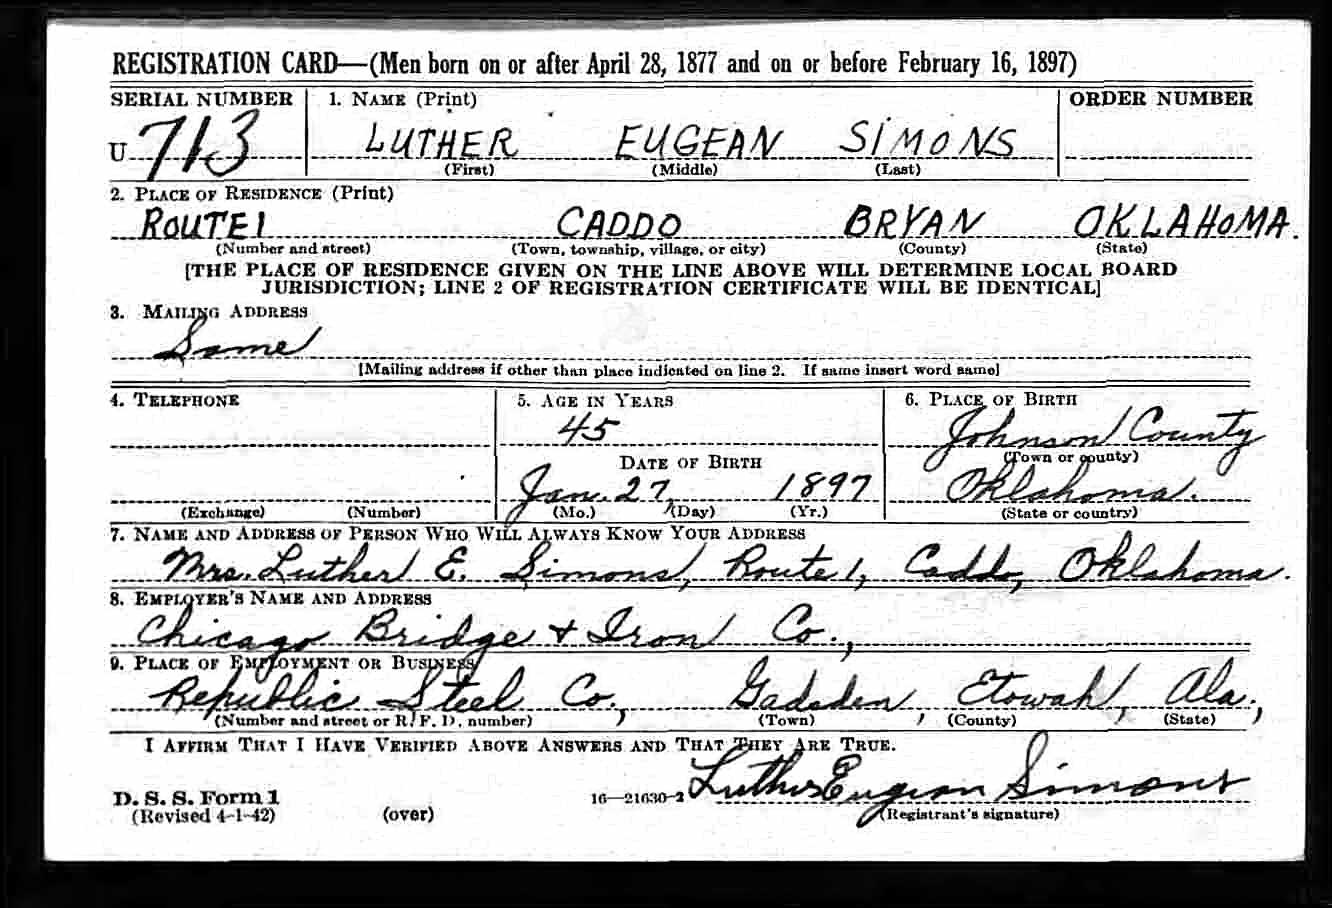 REGISTRATION CARD—(Men born on or after April 28, 1877 and on or before February 16, 1897)
SERIAL NUMBER 1. NAME (Print) ORDER NUMBER
U 713 LUTHER EUGEAN SIMONS
(First) (Middle) (Last)
2. PLACE OF RESIDENCE (Print)
ROUTE 1 CADDO BRYAN OKLAHOMA.
(Number and street) (Town, township, village, or city) (County) (State)
[THE PLACE OF RESIDENCE GIVEN ON THE LINE ABOVE WILL DETERMINE LOCAL BOARD
JURISDICTION; LINE 2 OF REGISTRATION CERTIFICATE WILL BE IDENTICAL]
3. MAILING ADDRESS
Same
[Mailing address if other than place indicated on line 2. If same insert word same]
4. TELEPHONE 5. AGE IN YEARS 6. PLACE OF BIRTH
45 Johnson County
DATE OF BIRTH (Town or county)
Jan. 27, 1897 Oklahoma.
(Exchange) (Number) (Mo.) (Day) (Yr.) (State or country)
7. NAME AND ADDRESS OF PERSON WHO WILL ALWAYS KNOW YOUR ADDRESS
Mrs. Luther E. Simons, Route 1, Caddo, Oklahoma.
8. EMPLOYER'S NAME AND ADDRESS
Chicago Bridge & Iron Co.,
9. PLACE OF EMPLOYMENT OR BUSINESS
Republic Steel Co., Gadsden, Etowah, Ala.,
(Number and street or R. F. D. number) (Town) (County) (State)
I AFFIRM THAT I HAVE VERIFIED ABOVE ANSWERS AND THAT THEY ARE TRUE.
D. S. S. Form 1 16—21630-2 Luther Eugean Simons
(Revised 4-1-42) (over) (Registrant's signature)